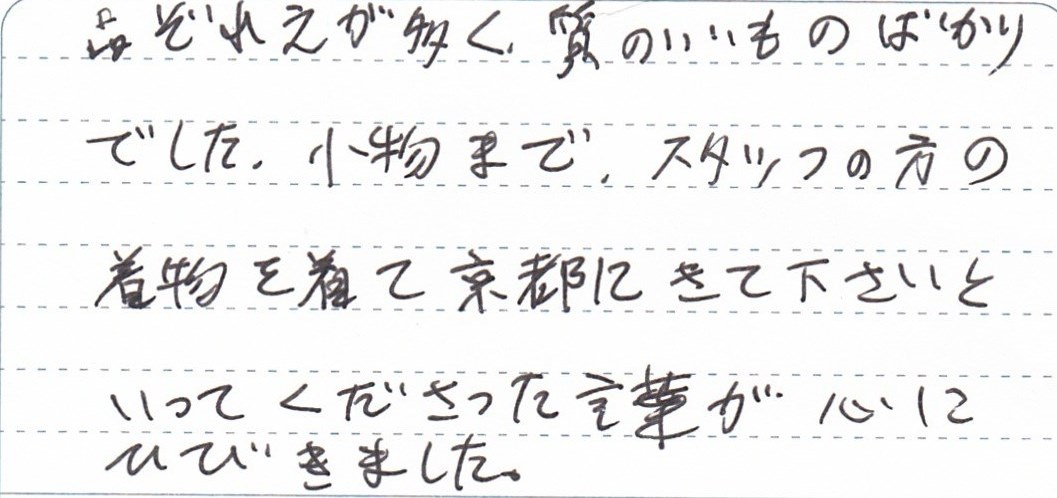 品ぞれえが多く、質のいいものばかり
でした。小物まで、スタッフの方の
着物を着て京都にきて下さいと
いってくださった言葉が心に
ひびきました。